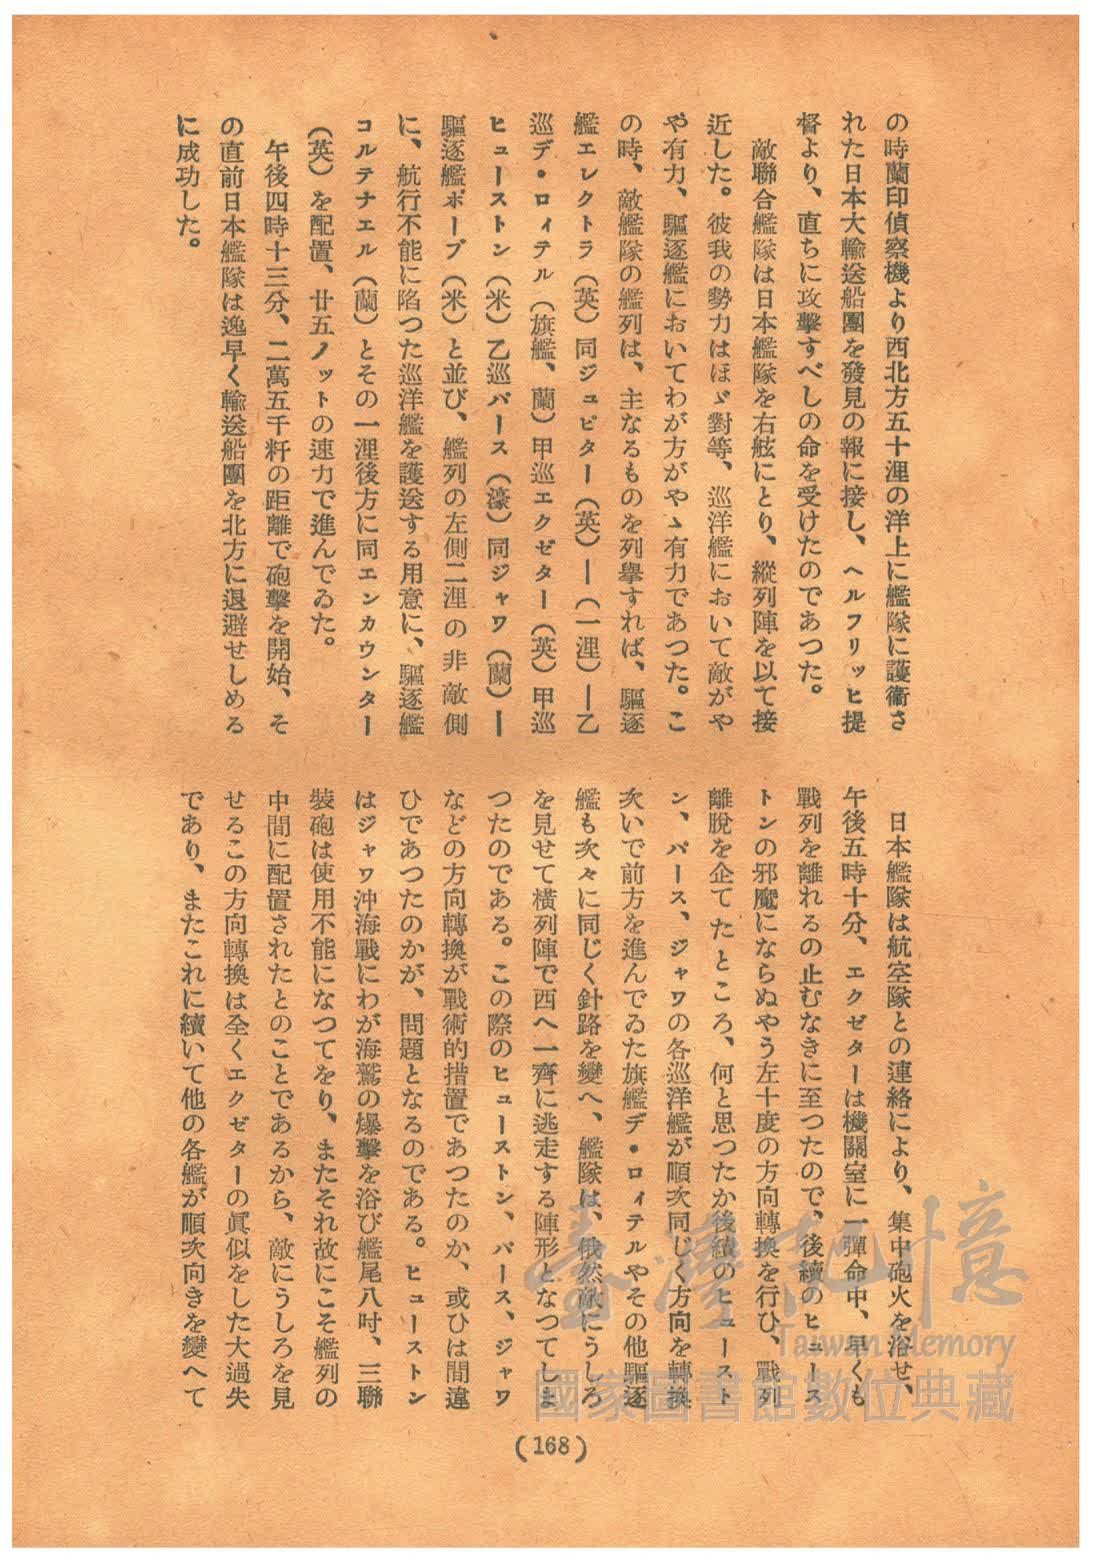 の時蘭印偵察機より西北方五十浬の洋上に艦隊に護衞さ
れた日本大輸送船團を發見の報に接し、ヘルフリッヒ提
督より、直ちに攻擊すべしの命を受けたのであつた。
敵聯合艦隊は日本艦隊を右舷にとり、縱列陣を以て接
近した。彼我の勢力はほゞ對等、巡洋艦において敵がや
や有力、驅逐艦においてわが方がやゝ有力であつた。こ
の時、敵艦隊の艦列は、主なるものを列擧すれば、驅逐
艦エレクトラ（英）同ジュピター（英）―（一浬）―乙
巡デ・ロイテル（旗艦、蘭）甲巡エクゼター（英）甲巡
ヒューストン（米）乙巡パース（濠）同ジャワ（蘭）―
驅逐艦ポープ（米）と並び、艦列の左側二浬の非敵側
に、航行不能に陷つた巡洋艦を護送する用意に、驅逐艦
コルテナエル（蘭）とその一浬後方に同エンカウンター
（英）を配置、廿五ノットの速力で進んでゐた。
午後四時十三分、二萬五千粁の距離で砲擊を開始、そ
の直前日本艦隊は逸早く輸送船團を北方に退避せしめる
に成功した。
日本艦隊は航空隊との連絡により、集中砲火を浴せ、
午後五時十分、エクゼターは機關室に一彈命中、早くも
戰列を離れるの止むなきに至つたので、後續のヒュース
トンの邪魔にならぬやう左十度の方向轉換を行ひ、戰列
離脫を企てたところ、何と思つたか後續のヒュースト
ン、パース、ジャワの各巡洋艦が順次同じく方向を轉換
次いで前方を進んでゐた旗艦デ・ロイテルやその他驅逐
艦も次々に同じく針路を變へ、艦隊は、俄然敵にうしろ
を見せて橫列陣で西へ一齊に逃走する陣形となつてしま
つたのである。この際のヒューストン、パース、ジャワ
などの方向轉換が戰術的措置であつたのか、或ひは間違
ひであつたのかが、問題となるのである。ヒューストン
はジャワ沖海戰にわが海鷲の爆擊を浴び艦尾八吋、三聯
裝砲は使用不能になつてをり、またそれ故にこそ艦列の
中間に配置されたとのことであるから、敵にうしろを見
せるこの方向轉換は全くエクゼターの眞似をした大過失
であり、またこれに續いて他の各艦が順次向きを變へて
(168)
臺灣記憶
Taiwan Memory
國家圖書館數位典藏